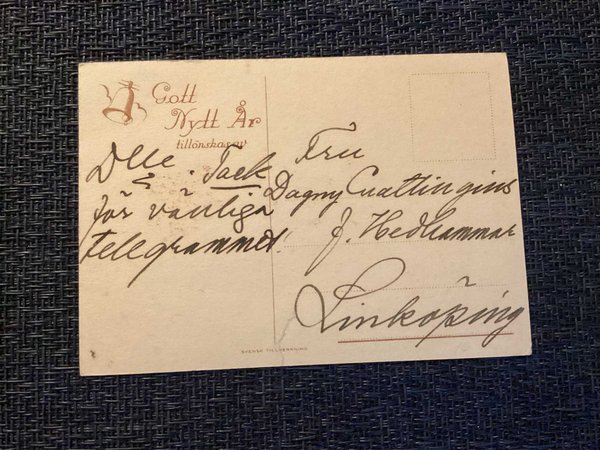 Gott
Nytt År
tillönskas av
Olle. Tack
för vänliga
telegrammet.
Fru
Dagny Cnattingius
f. Hedhammar
Linköping
SVENSK TILLVERKNING